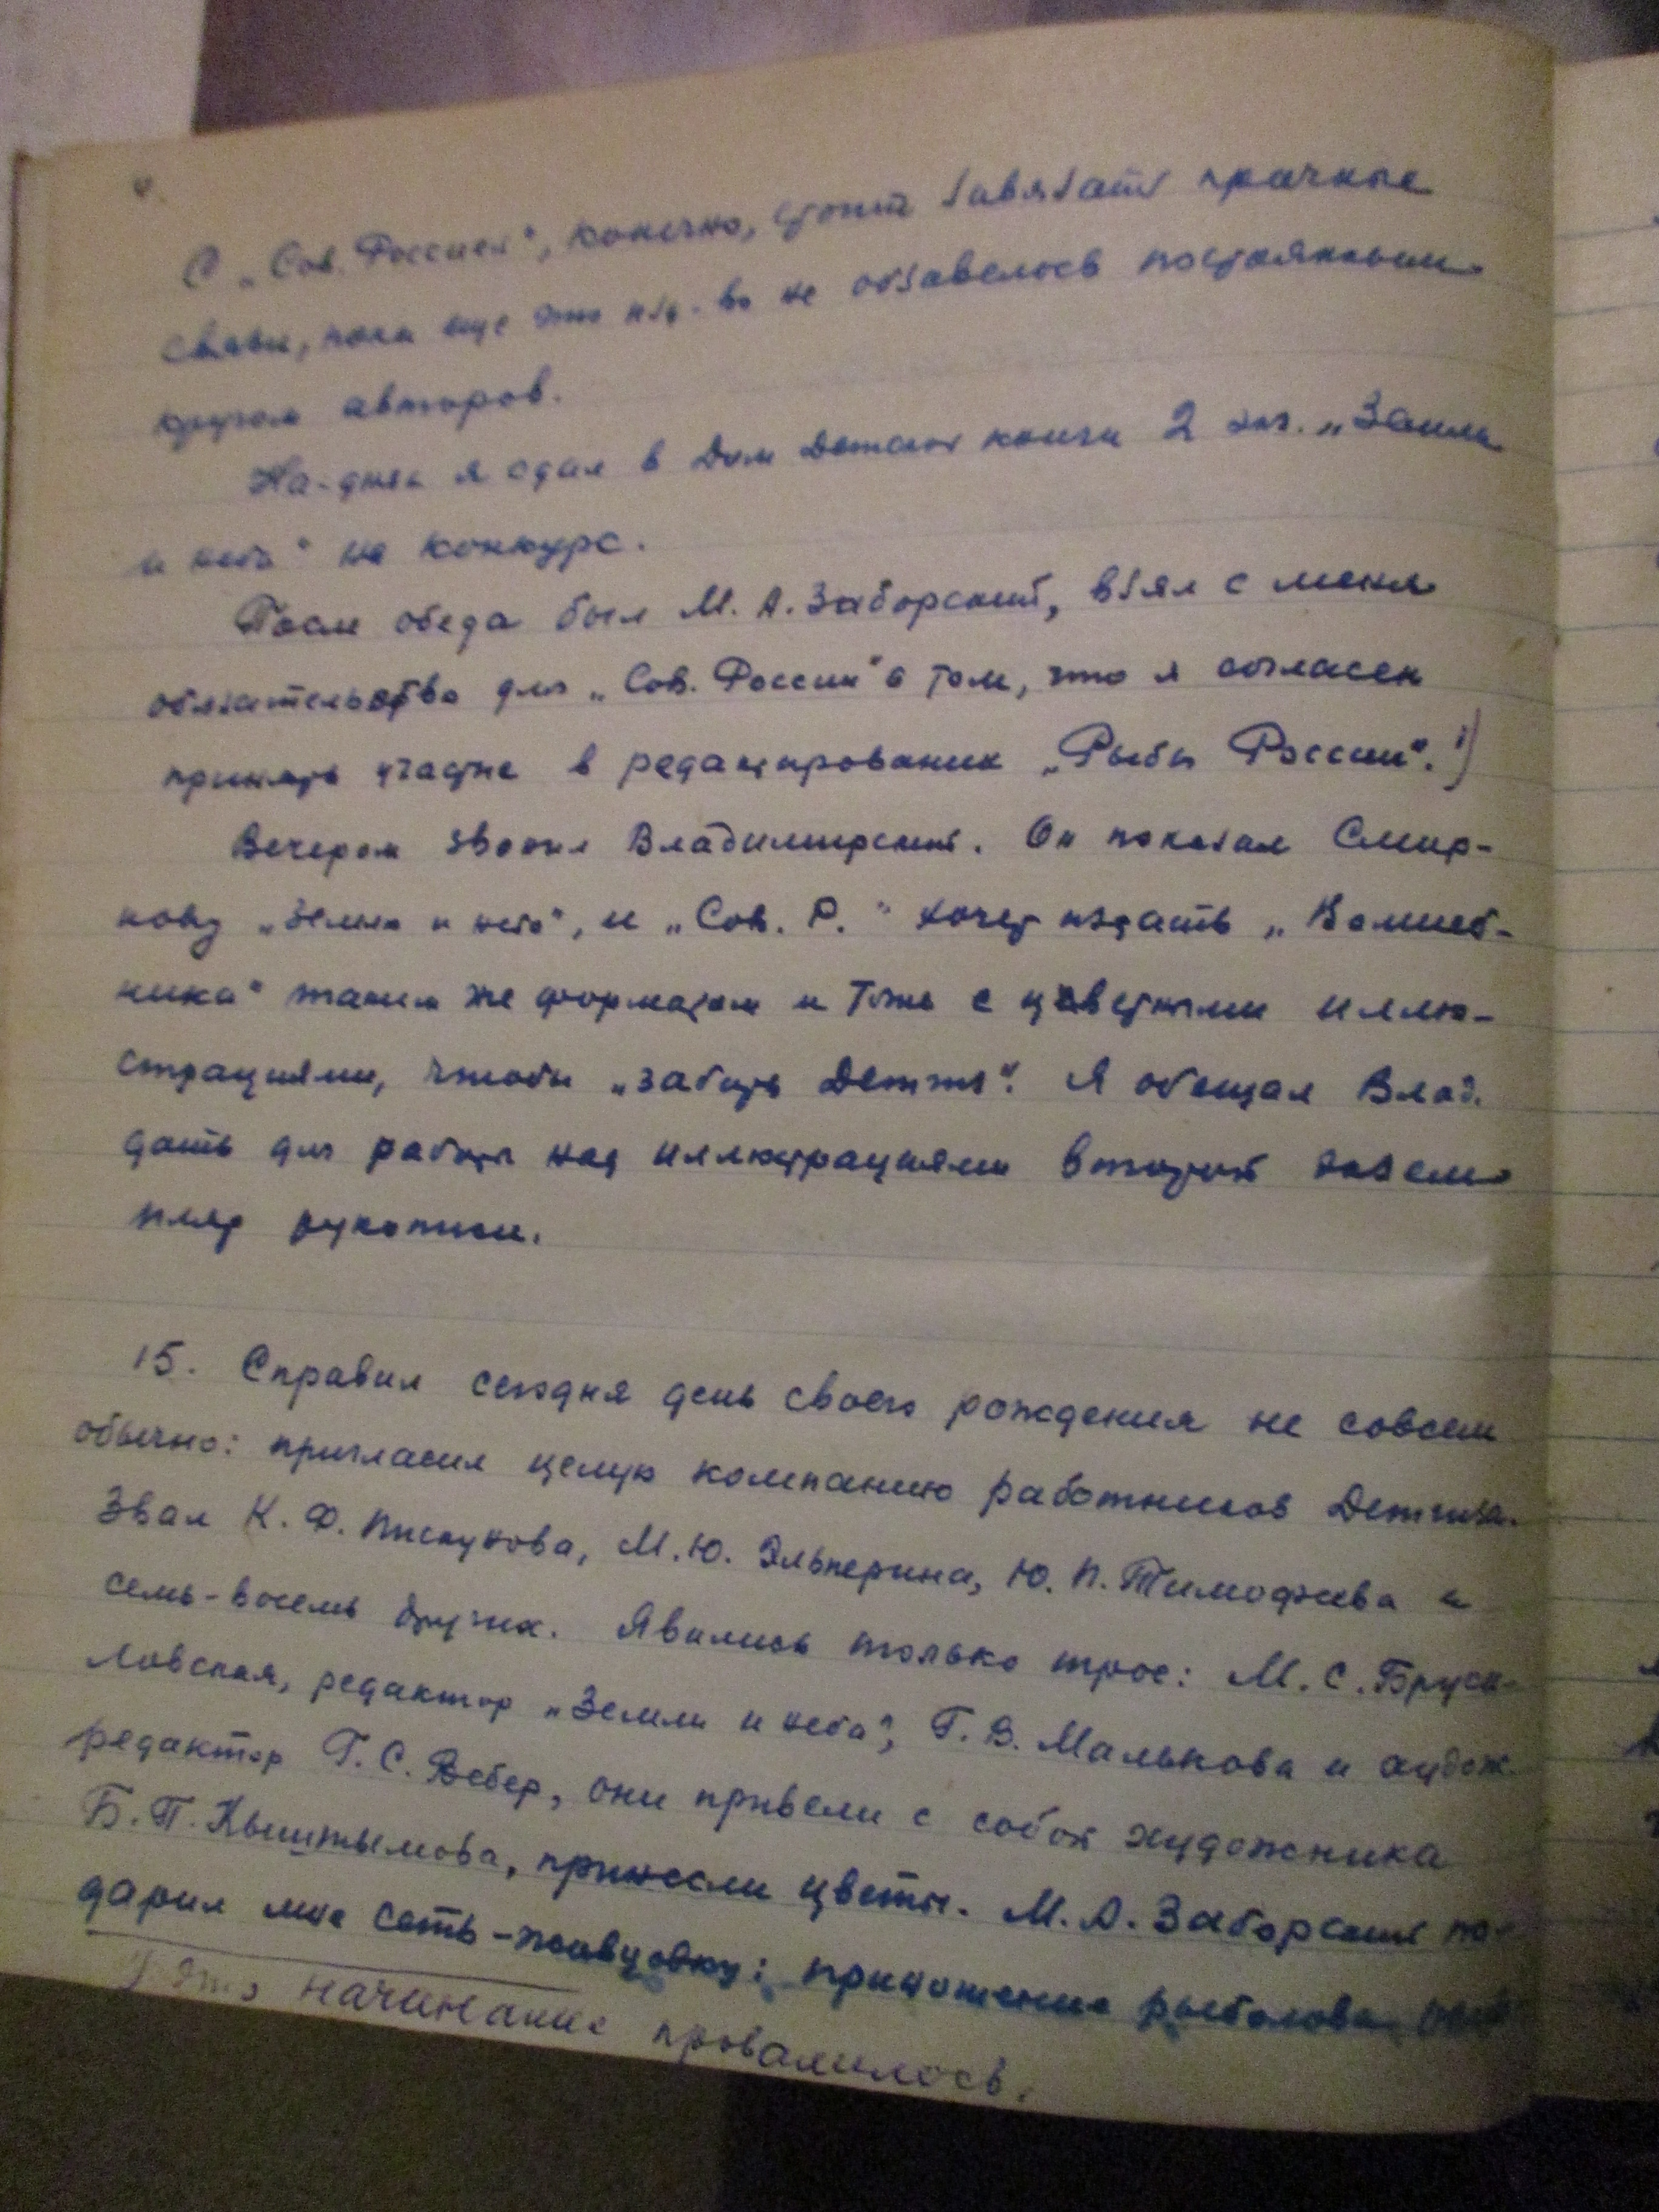 С „Сов. Россией", конечно, стоит завязать прочные
связи, пока еще это изд-во не обзавелось постоянным
кругом авторов.
На-днях я сдал в Дом Детской книги 2 экз. „Земли
и неба" на конкурс.
После обеда был М. А. Заборский, взял с меня
обязательство для „Сов. России" в том, что я согласен
принять участие в редактировании „Рыбы России". 1)
Вечером звонил Владимирский. Он показал Смир-
нову „Землю и небо", и „Сов. Р." хочет издать „Волшеб-
ника" таким же форматом и тоже с цветными иллю-
страциями, чтобы „забить Детгиз". Я обещал Влад.
дать для работы над иллюстрациями второй экзем-
пляр рукописи.
15. Справил сегодня день своего рождения не совсем
обычно: пригласил целую компанию работников Детгиза.
Звал К. Ф. Пискунова, М. Ю. Эльперина, Ю. П. Тимофеева и
семь-восемь других. Явились только трое: М. С. Бруси-
ловская, редактор „Земли и неба", Г. В. Малькова и худож.
редактор Г. С. Вебер, они привели с собой художника
Б. П. Кыштымова, принесли цветы. М. А. Заборский по-
дарил мне сеть- : приношение рыболова
1) Это начинание провалилось.